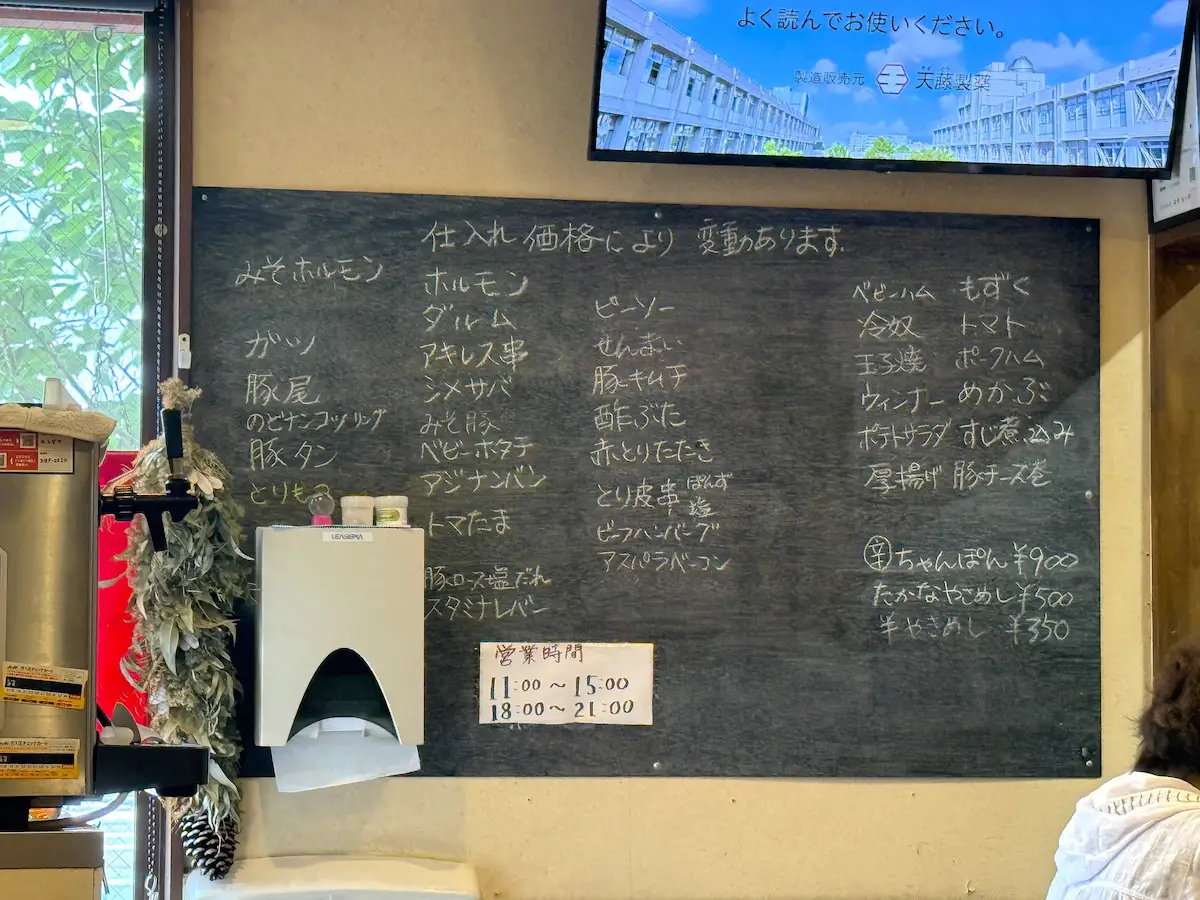 よく読んでお使いください。
製造販売元 天藤製薬
仕入れ価格により 変動あります.
みそホルモン
ガツ
豚尾
のどナンコツリング
豚タン
とりもつ
ホルモン
ダルム
アキレス串
シメサバ
みそ豚
ベビーホタテ
アジナンバン
トマたま
豚ロース塩だれ
スタミナレバー
ビーソー
せんまい
豚キムチ
酢ぶた
赤とりたたき
とり皮串 ぽんず 塩
ビーフハンバーグ
アスパラベーコン
ベビーハム もずく
冷奴 トマト
玉子焼 ポークハム
ウィンナー めかぶ
ポテトサラダ すじ煮込み
厚揚げ 豚チーズ巻
辛ちゃんぽん ¥900
たかなやきめし ¥500
半やきめし ¥350
LEASEPIA
営業時間
11:00～15:00
18:00～21:00